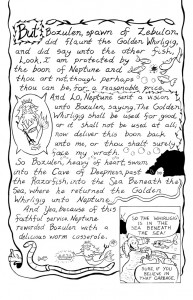 But Bozulen, spawn of Zebulon,
did flaunt the Golden Whirligig,
and did say unto the other fish,
Look, I am protected by
the boon of Neptune and
thou art not, though perhaps
thou can be, for a reasonable price.
And Lo, Neptune sent a vision
unto Bozulen, saying, The Golden
Whirligig shall be used for good,
or shall not be used at all,
now deliver this boon back
unto me, or thou shalt surely
face my wrath.
So Bozulen, heavy of heart, swam
into the Cave of Deepness, past
the Razorfish, into the Sea Beneath the
Sea, where he returned the Golden
Whirligig unto Neptune.
And Yea, because of this
faithful service Neptune
rewarded Bozulen with a
delicious worm casserole.
SO THE WHIRLIGIG
IS IN THE
SEA BENEATH
THE SEA!
SURE, IF YOU
BELIEVE IN
THAT GARBAGE.